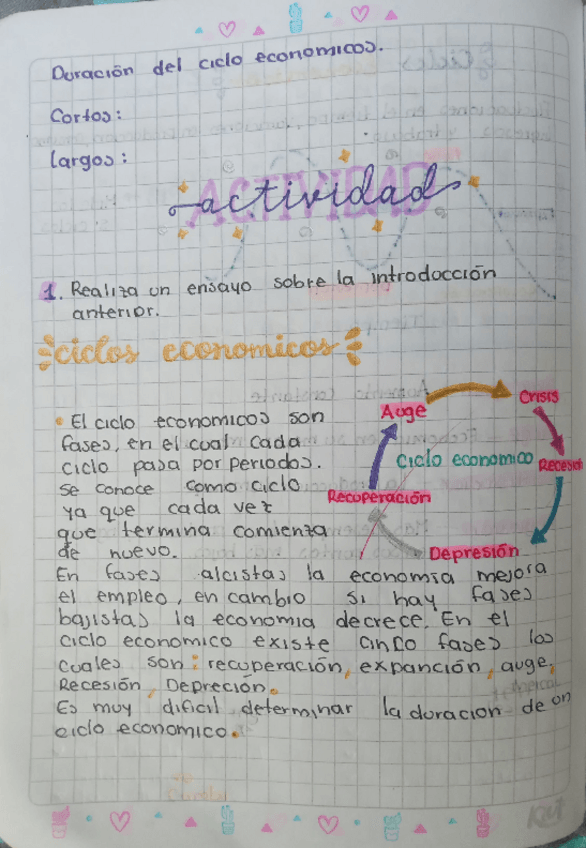 Duración del ciclo economicos.
Cortos:
largos:
ACTIVIDAD
actividad
1. Realiza un ensayo sobre la introducción
anterior.
ciclos economicos
• El ciclo economicos son
fases, en el cual cada
ciclo pasa por periodos.
se conoce como ciclo
ya que cada vez
que termina comienza
de nuevo.
En fases alcistas la economia mejora
el empleo, en cambio si hay fases
bajistas la economia decrece. En el
ciclo economico existe cinco fases los
cuales son: recuperación, expanción, auge,
Recesión, Depreción.
Es muy dificil determinar la duracion de un
ciclo economico.
Auge
Crisis
Ciclo economico
Recesión
Recuperación
Depresión